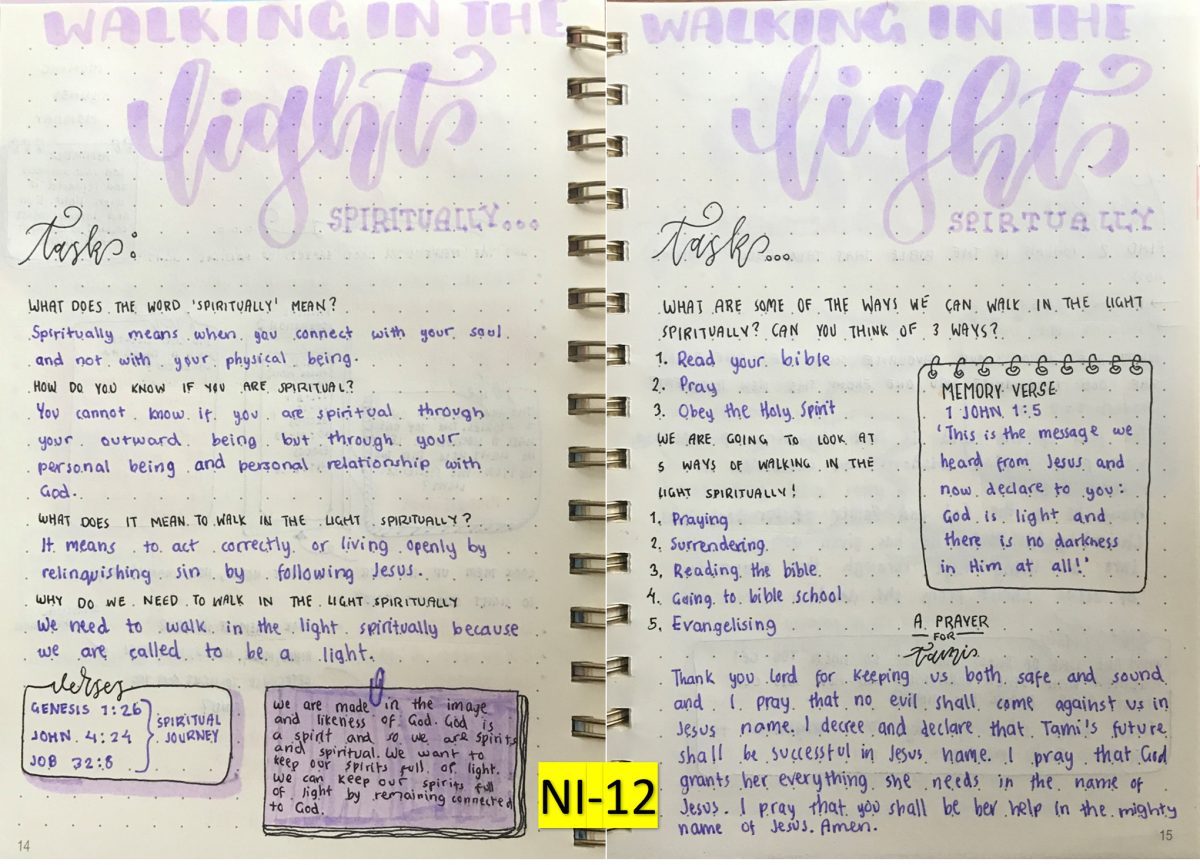 WALKING IN THE
light
SPIRITUALLY...
Tasks:
WHAT DOES THE WORD 'SPIRITUALLY' MEAN?
Spiritually means when you connect with your soul
and not with your physical being.
HOW DO YOU KNOW IF YOU ARE SPIRITUAL?
You cannot know if you are spiritual through
your outward being but through your
personal being and personal relationship with
God.
WHAT DOES IT MEAN TO WALK IN THE LIGHT SPIRITUALLY?
It means to act correctly or living openly by
relinquishing sin by following Jesus.
WHY DO WE NEED TO WALK IN THE LIGHT SPIRITUALLY
We need to walk in the light spiritually because
we are called to be a light.
Verses
GENESIS 1:26
JOHN 4:24
JOB 32:8
SPIRITUAL
JOURNEY
We are made in the image
and likeness of God. God is
a spirit and so we are spirits
and spiritual. We want to
keep our spirits full of light.
We can keep our spirits full
of light by remaining connected
to God.
14
WALKING IN THE
light
SPIRTUALLY
Tasks...
WHAT ARE SOME OF THE WAYS WE CAN WALK IN THE LIGHT
SPIRITUALLY? CAN YOU THINK OF 3 WAYS?
1. Read your bible
2. Pray
3. Obey the Holy Spirit
WE ARE GOING TO LOOK AT
5 WAYS OF WALKING IN THE
LIGHT SPIRITUALLY!
1. Praying
2. Surrendering
3. Reading the bible
4. Going to bible school
5. Evangelising
MEMORY VERSE
1 JOHN 1:5
'This is the message we
heard from Jesus and
now declare to you:
God is light and
there is no darkness
in Him at all!'
A PRAYER
FOR
Tamis
Thank you Lord for keeping us both safe and sound
and I pray that no evil shall come against us in
Jesus name. I decree and declare that Tami's future
shall be successful in Jesus name. I pray that God
grants her everything she needs in the name of
Jesus. I pray that you shall be her help in the mighty
name of Jesus. Amen.
15
NI-12